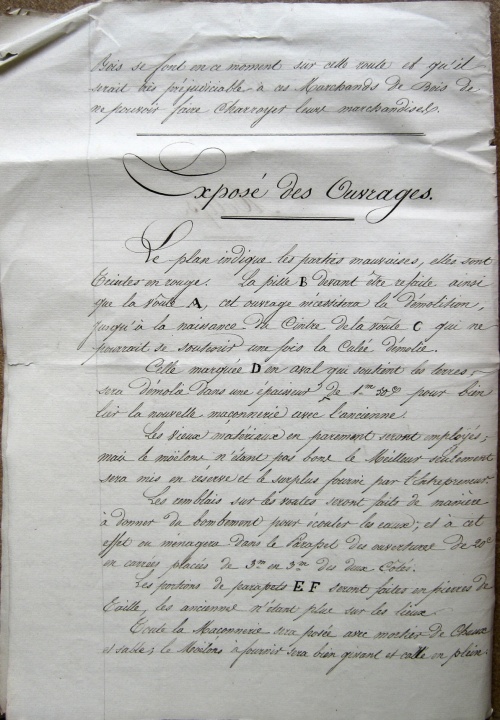 Bois se font en ce moment sur cette route et qu'il
serait très préjudiciable à ces Marchands de Bois de
ne pouvoir faire Charroyer leurs marchandises.
Exposé des Ouvrages.
Le plan indique les parties mauvaises, elles sont
Teintes en rouge. La pille B devant être refaite ainsi
que la voûte A, cet ouvrage nécessitera le démolition,
jusqu'à la naissance de Cintre de la voûte C qui ne
pourrait se soutenir une fois la Culée démolie.
Celle marquée D en aval qui soutient les terres,
sera démolie dans une épaisseur de 1.m pour bien
lier la nouvelle maçonnerie avec l'ancienne.
Les vieux matériaux en parement seront employés;
mais le moëlone n'étant pas bone le Meilleur seulement
sera mis en réserve et le surplus fourni par l'Entrepreneur.
Les remblais sur les voutes seront faits de manière
à donner du bombement pour écouler les eaux; et à cet
effet on ménagera dans le Parapet des ouverture de 20c
en carrées placées de 3m en 3m des deux Côtés.
Les portions de parapets E F seront faites en pierres de
Taille, les ancienne n'étant plus sur les lieux.
Toute la Maçonnerie sera posée avec mortier de Chaux
et sable; le Moëlons à fournir sera bien gisant et calle en plein